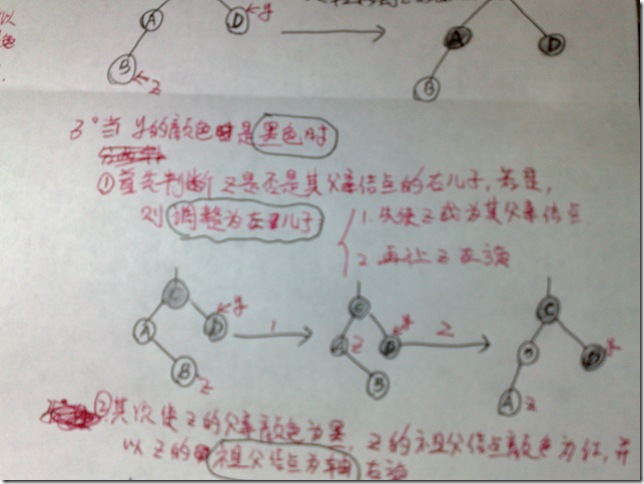 A
D
y
A
D
B
z
B
3°当y的颜色时是黑色时
①首先判断z是否是其父亲结点的右儿子,若是,
则调整为左儿子
1.先使z成为其父亲结点
2.再让z左旋
C
y
C
y
C
A
D
1
A
z
D
2
B
D
y
B
z
B
A
z
②其次使z的父亲颜色为黑,z的祖父结点颜色为红,并
以z的祖父结点为轴右旋